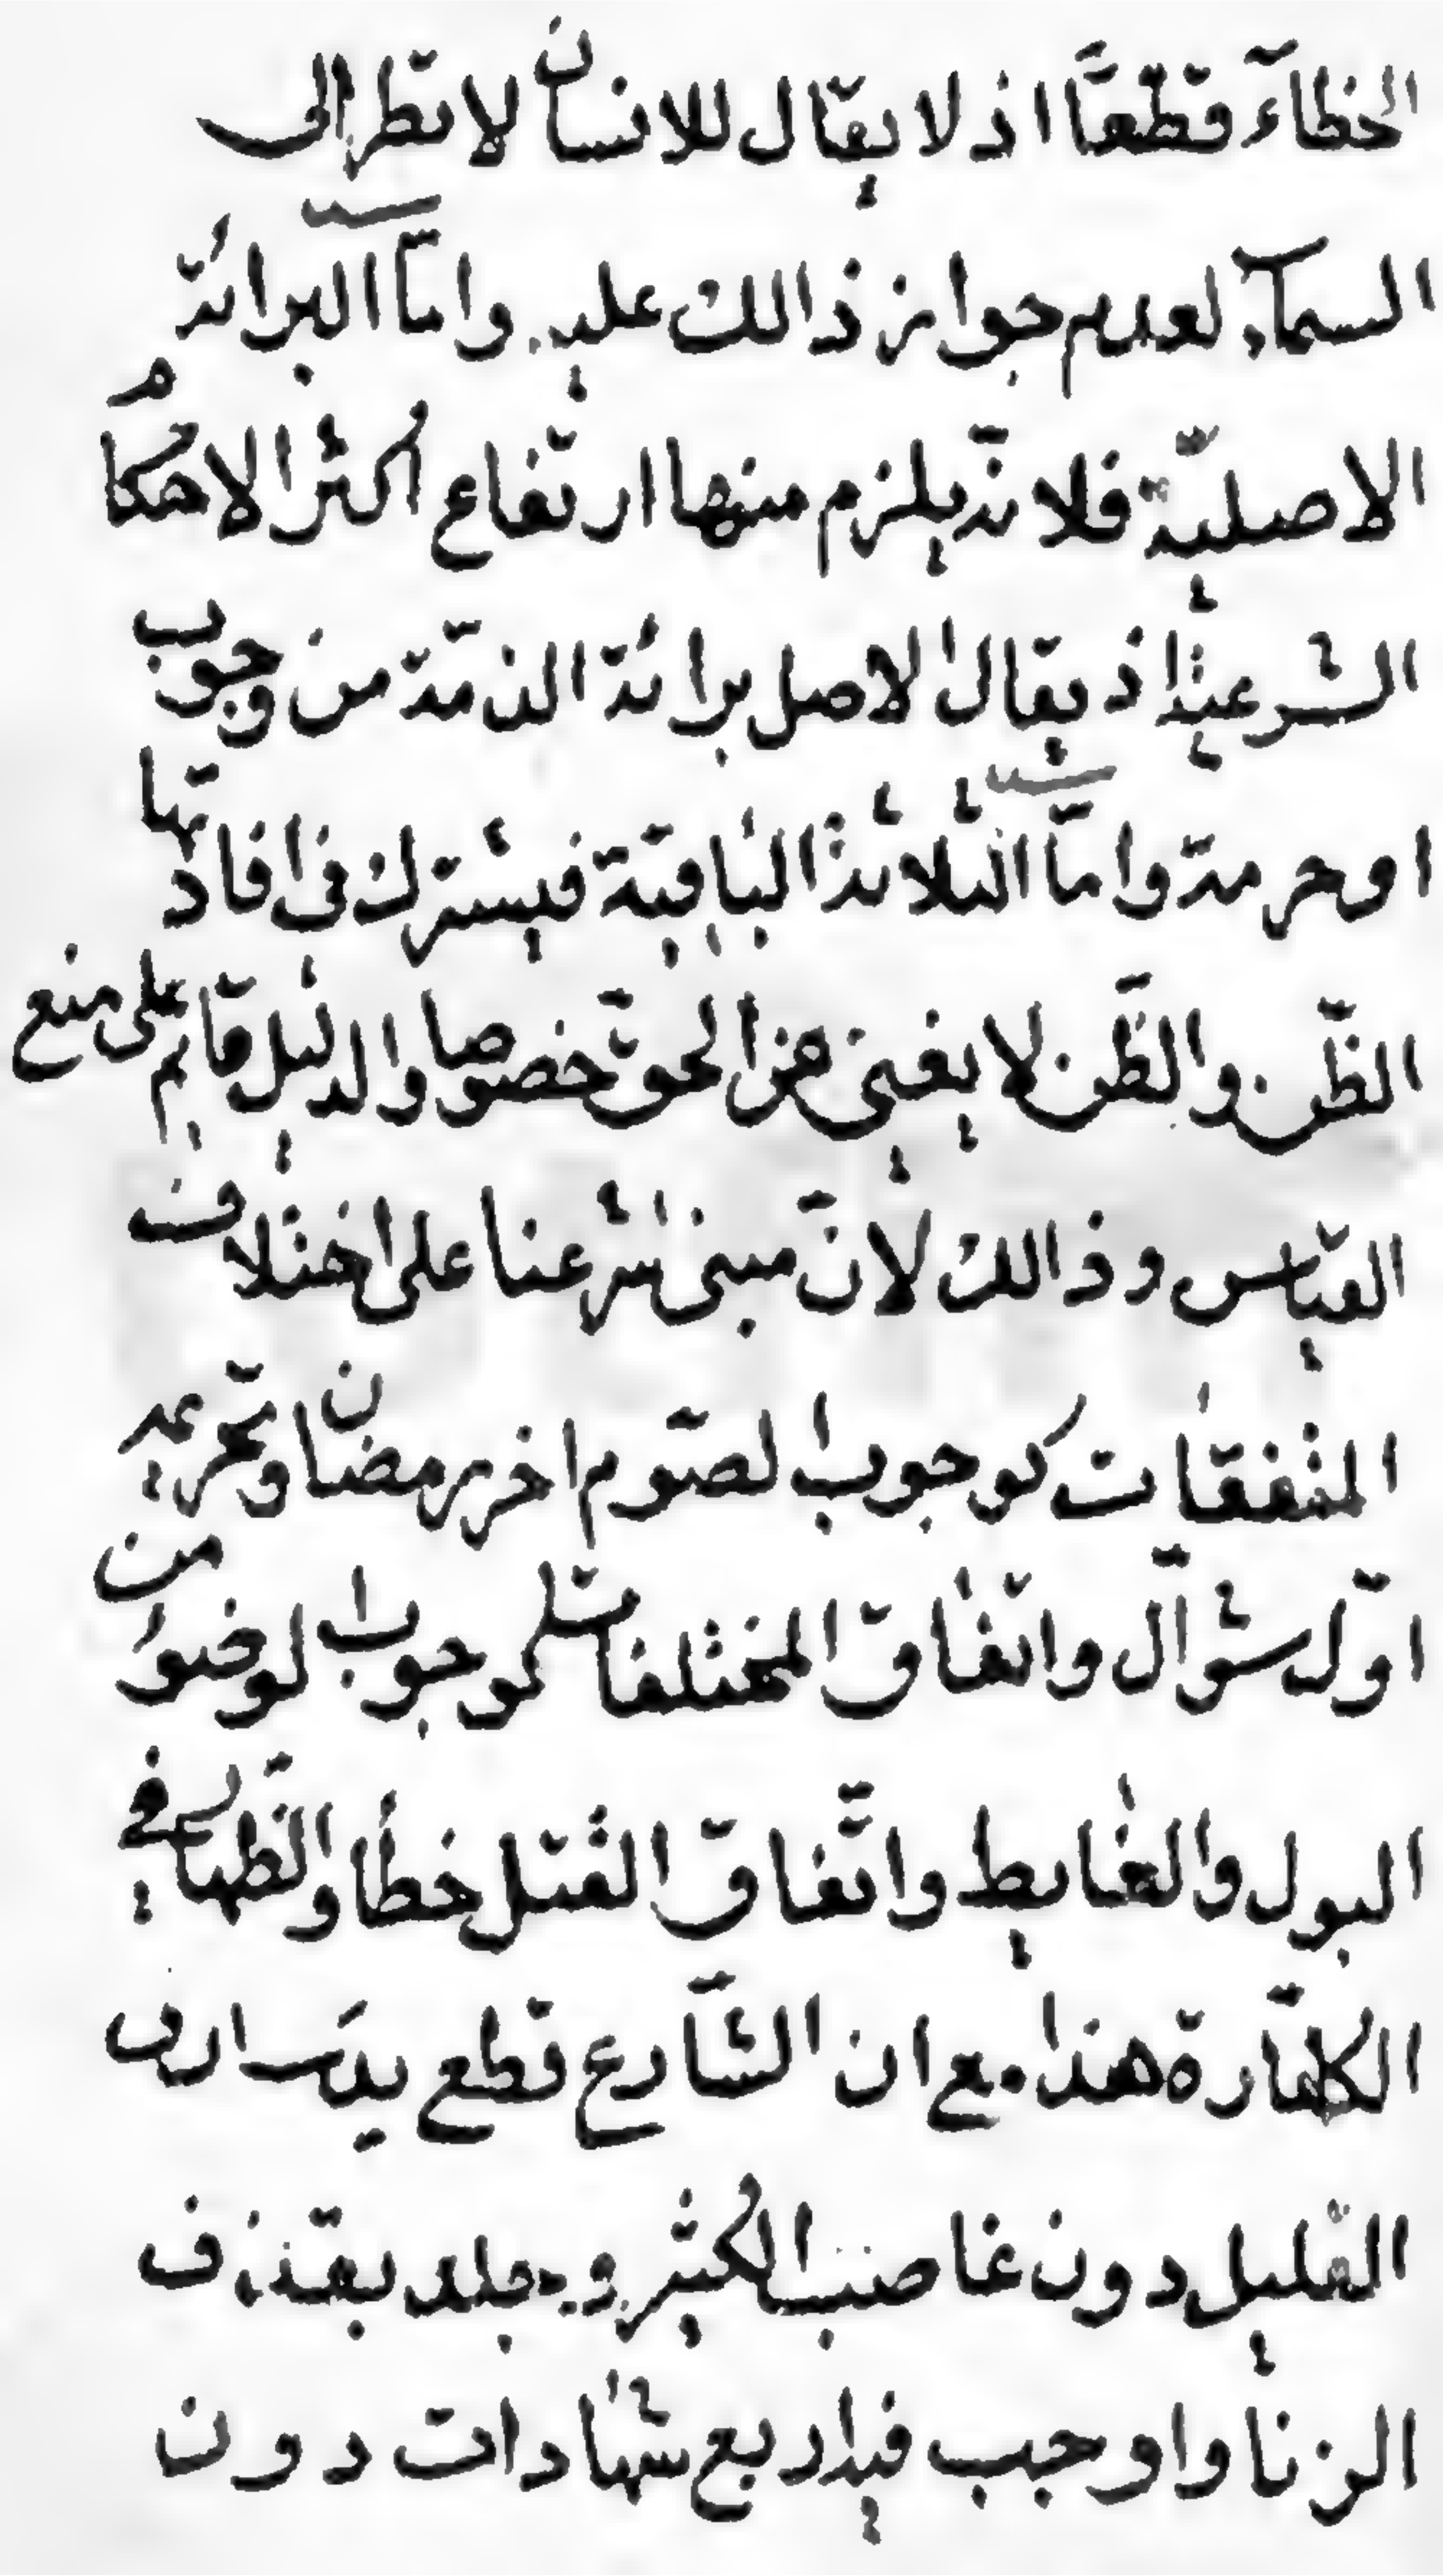 الخطاء قطعًا اذ لا يقال للانسان لا تطر الى
السمآء لعدم جواز ذالك عليه وامّا البرائة
الاصليّة فلانّه يلزم منها ارتفاع اكثر الاحكام
الشرعية اذ يقال الاصل برائة الذمّة من وجوب
او حرمة وامّا الثلاثة الباقية فيشترك في افادتها
الظّن والظّن لا يغنى من الحق خصوصا والدليل قايم على منع
القياس وذالك لانّ مبنى شرعنا على اختلاف
المتفقات كوجوب الصّوم اخر رمضان وتحريمه
اوّل شوّال واتفاق المختلفات كوجوب الوضوء من
البول والغايط واتّفاق القتل خطأ والظّهار في
الكفّارة هذا مع ان الشّارع قطع يد سارق
القليل دون غاصب الكثير وجلد بقذف
الزنا واوجب فيه اربع شهادات دون